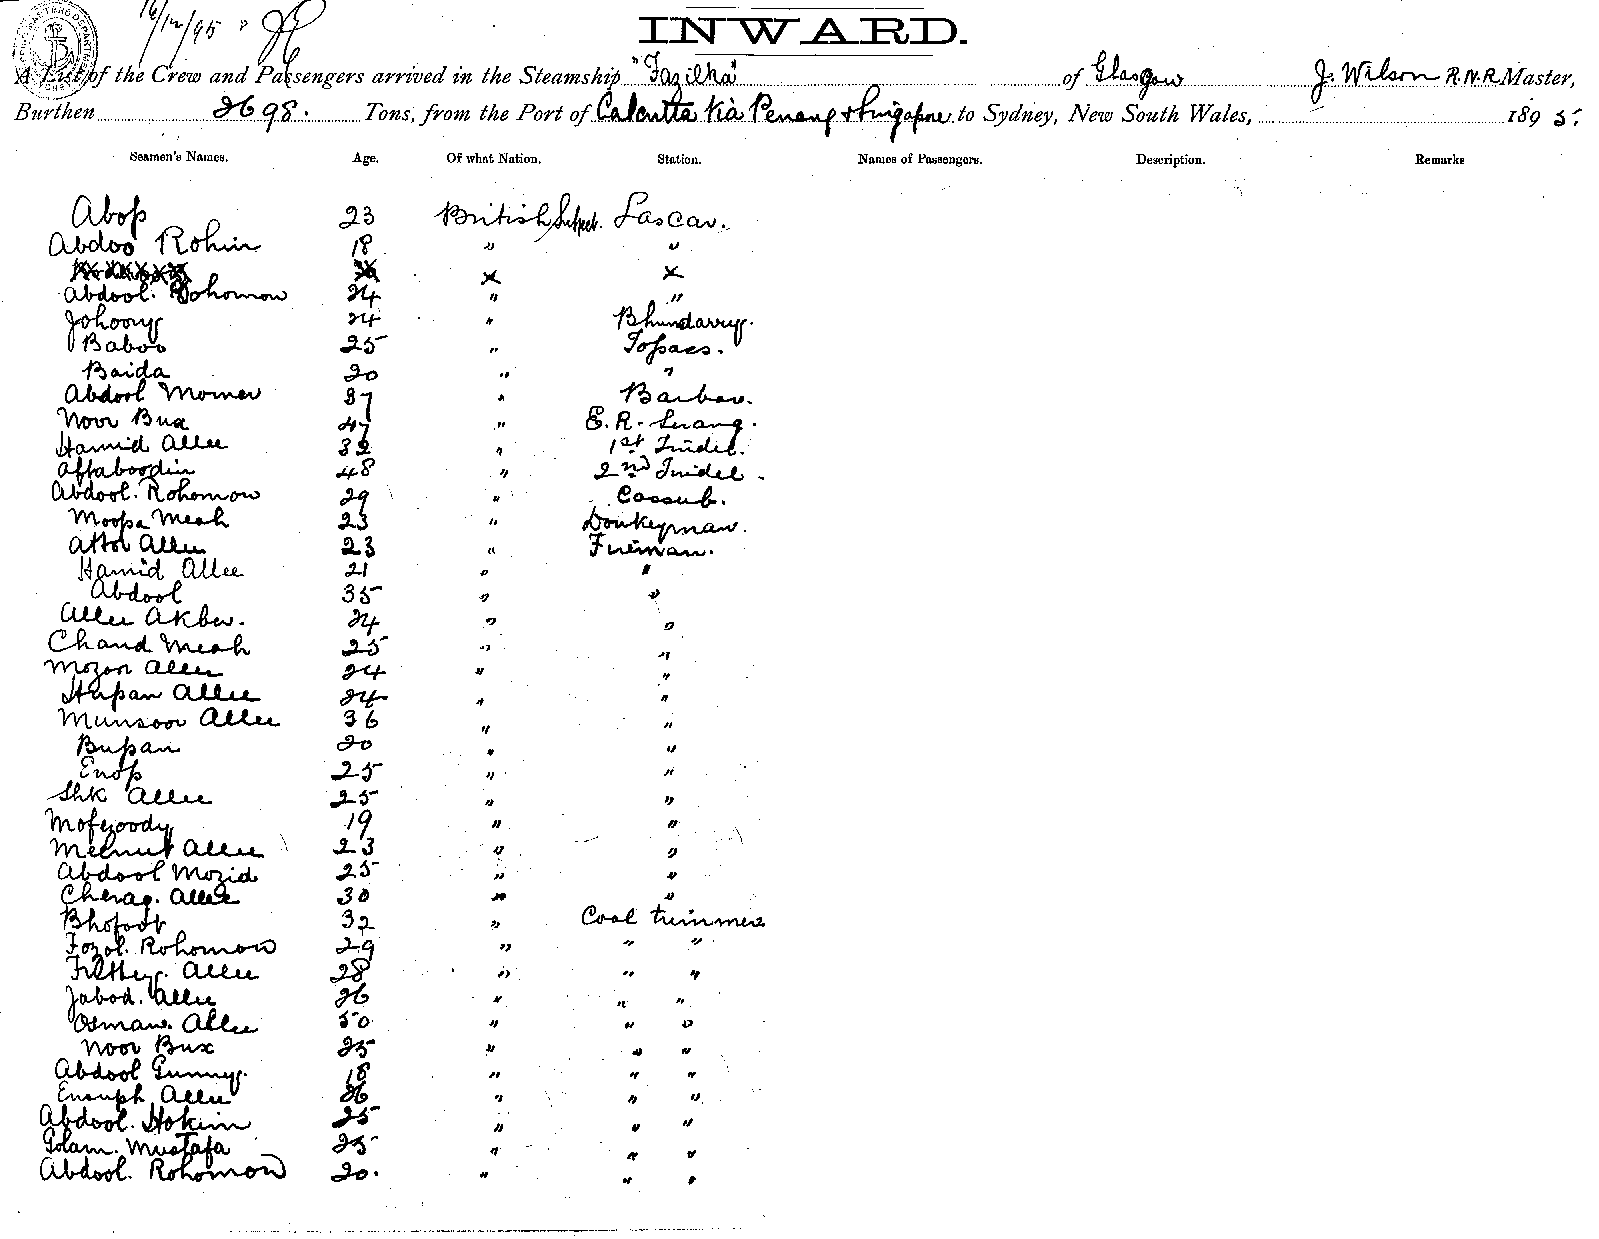 16/12/95
INWARD.
A List of the Crew and Passengers arrived in the Steamship "Fazilka" of Glasgow J. Wilson R.N.R Master,
Burthen 2698. Tons, from the Port of Calcutta via Penang & Singapore to Sydney, New South Wales, 1895.
Seamen's Names. Age. Of what Nation. Station. Names of Passengers. Description. Remarks
Abop 23 British Subject. Lascar.
Abdoo Rohim 18 " "
Abdool. Rohomon 24 " "
Johoory 24 " Bhundarry.
Baboo 25 " Topass.
Baida 20 " "
Abdool Momen 37 " Barbar.
Noor Bux 47 " E. R. Serang.
Hamid Allee 32 " 1st Tindel.
Aftaboodin 48 " 2nd Tindel.
Abdool. Rohomon 29 " Cassub.
Moopa Meah 23 " Donkeyman.
Attor Allee 23 " Fireman.
Hamid Allee 21 " "
Abdool 35 " "
Allee Akber. 24 " "
Chand Meah 25 " "
Mozon Allee 24 " "
Hapan Allee 24 " "
Munsoor Allee 36 " "
Bupan 20 " "
Enop 25 " "
Shk Allee 25 " "
Mofezoody 19 " "
Melmut Allee 23 " "
Abdool Mozid 25 " "
Cherag. Allee 30 " "
32 " Coal trimmer
Fozol. Rohomon 29 " " "
Allee 28 " " "
Jabod. Allee 26 " " "
Osman. Allee 50 " " "
Noor Bux 25 " " "
Abdool Gunny. 18 " " "
Enouph Allee 26 " " "
Abdool. Hokim 25 " " "
Golam. Mustafa 25 " " "
Abdool. Rohomon 20. " " "